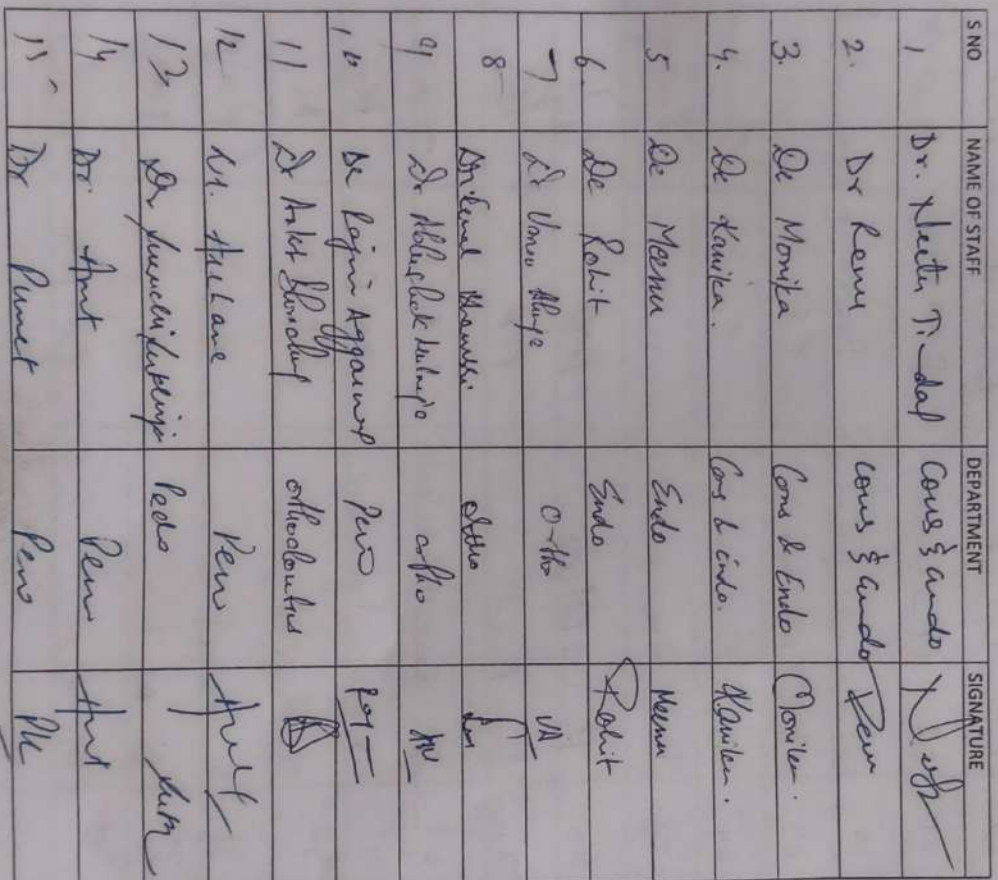 S NO NAME OF STAFF DEPARTMENT SIGNATURE
1 Dr. Neetu Jindal Cons & endo
2. Dr Renu Cons & endo Renu
3. Dr Monika Cons & Endo Monika.
4. Dr Kanika. Cons & endo. Kanika.
5 Dr Meenu Endo Meenu
6. Dr Rohit Endo Rohit
7 Dr Ortho VA
8 Dr Ortho
9 Dr Ortho
10 Dr Rajni Aggarwal Perio Raj
11 Dr Ankit Orthodontics
12 Dr. Archana Perio
13 Dr Pedo
14 Dr. Amit Perio Amit
15 Dr Puneet Perio PK